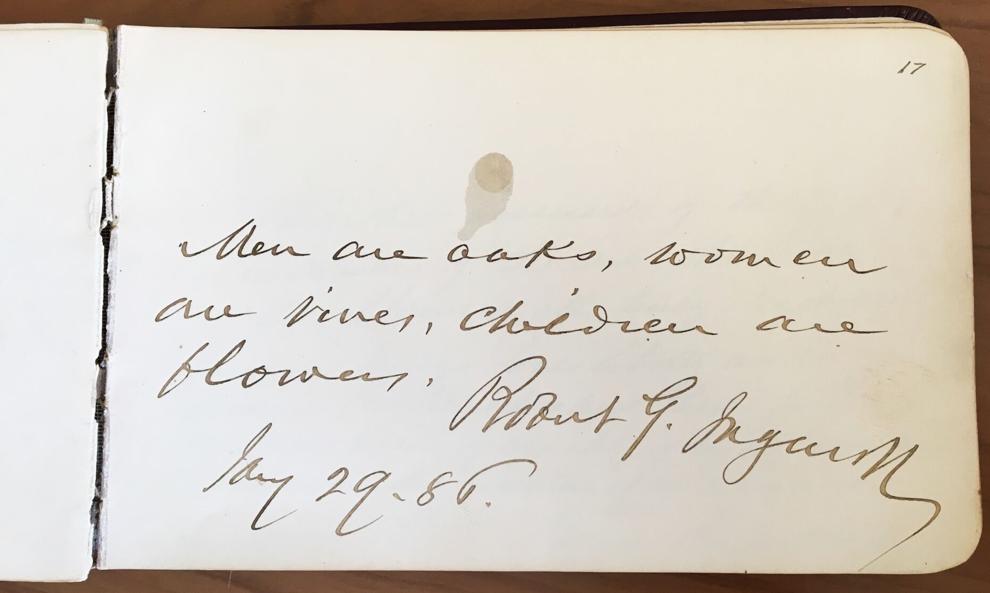 17
Men are oaks, women
are vines, children are
flowers.
Robert G. Ingersoll
Jany 29-86.